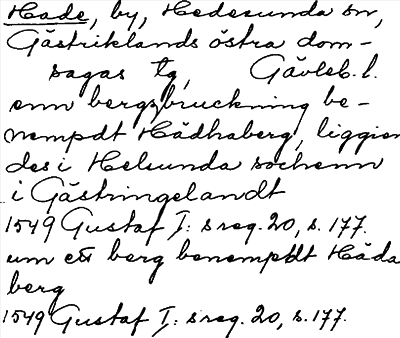 Hade, by, Hedesunda sn,
Gästriklands östra dom-
sagas tg, Gävleb. l.
enn bergzbruckning be-
nempdt Hådhaberg, liggien
des i Helsunda sochenn
i Gästringelandt
1549 Gustaf I: s reg. 20, s. 177.
um ett berg benempdt Håda
berg
1549 Gustaf I: s reg. 20, s. 177.